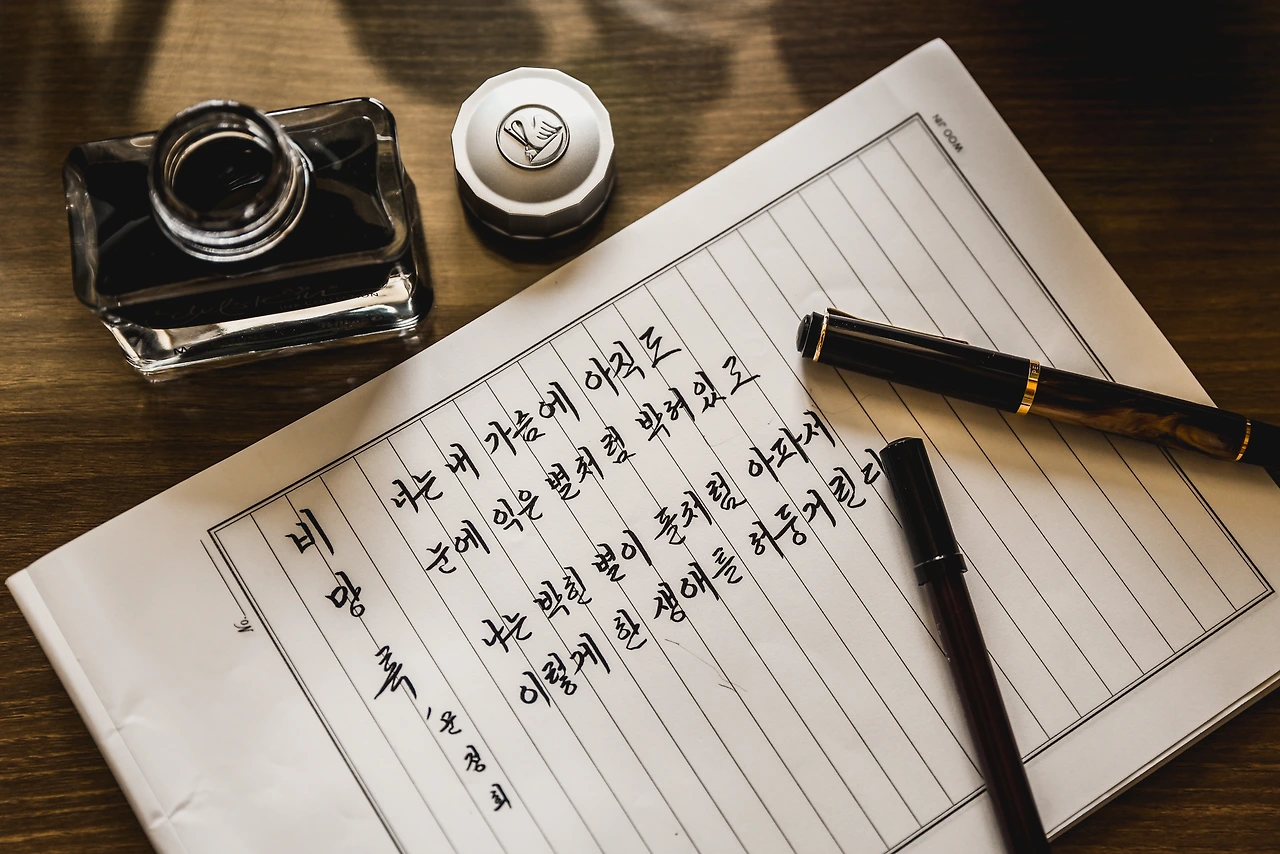 비망록, 문정희
너는 내 가슴에 아직도
눈에 익은 별처럼 박혀있고
나는 박힌 별이 돌처럼 아파서
이렇게 한 생애를 허둥거린다
No.
WOO JIN